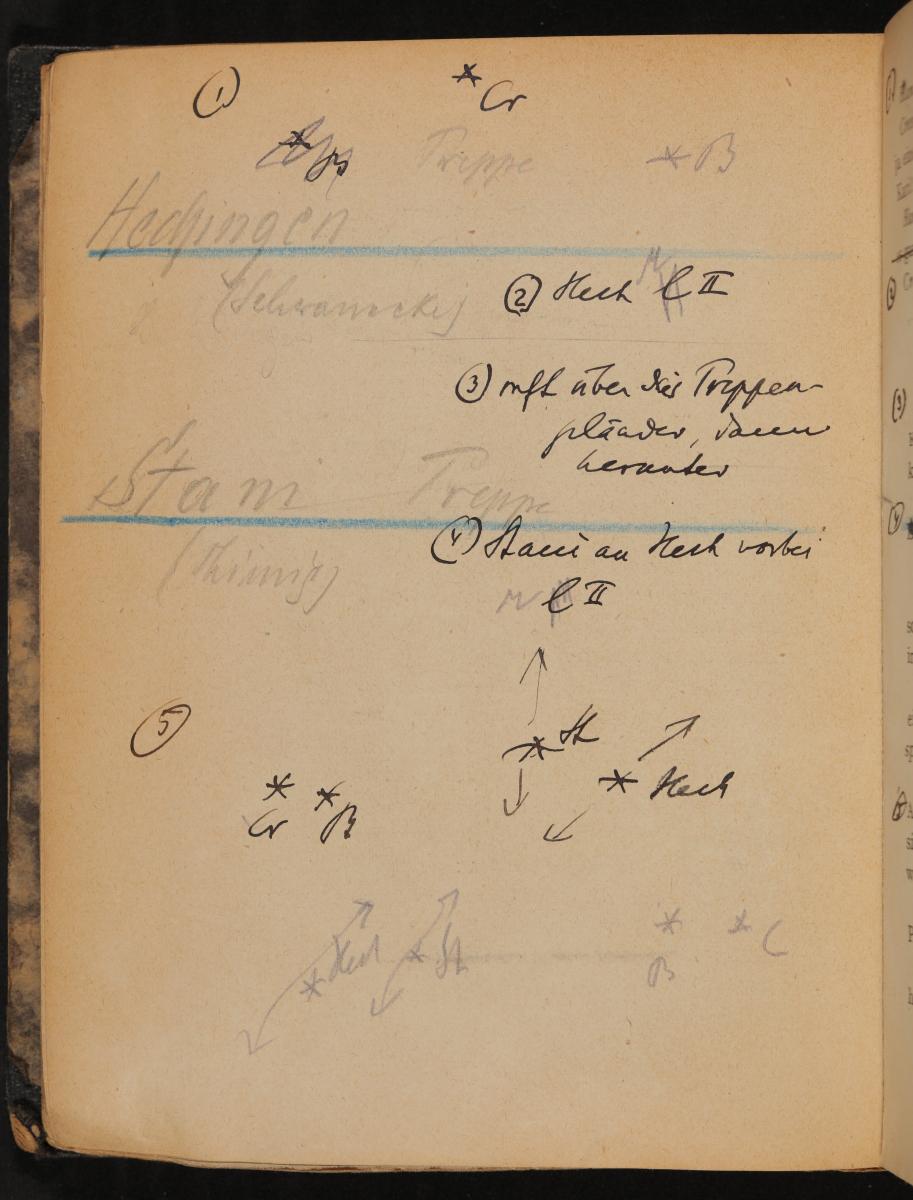 ① * Cr
* B Treppe * B
Hechingen
(Schwanneke)
② Hech l II
③ ruft über das Treppen-
gländer, dann
herunter
Stani Treppe
(Thimig)
④ Stani an Hech vorbei
l II
⑤
* St
* Hech
* *
Cr B
* Hech * St * * C
B